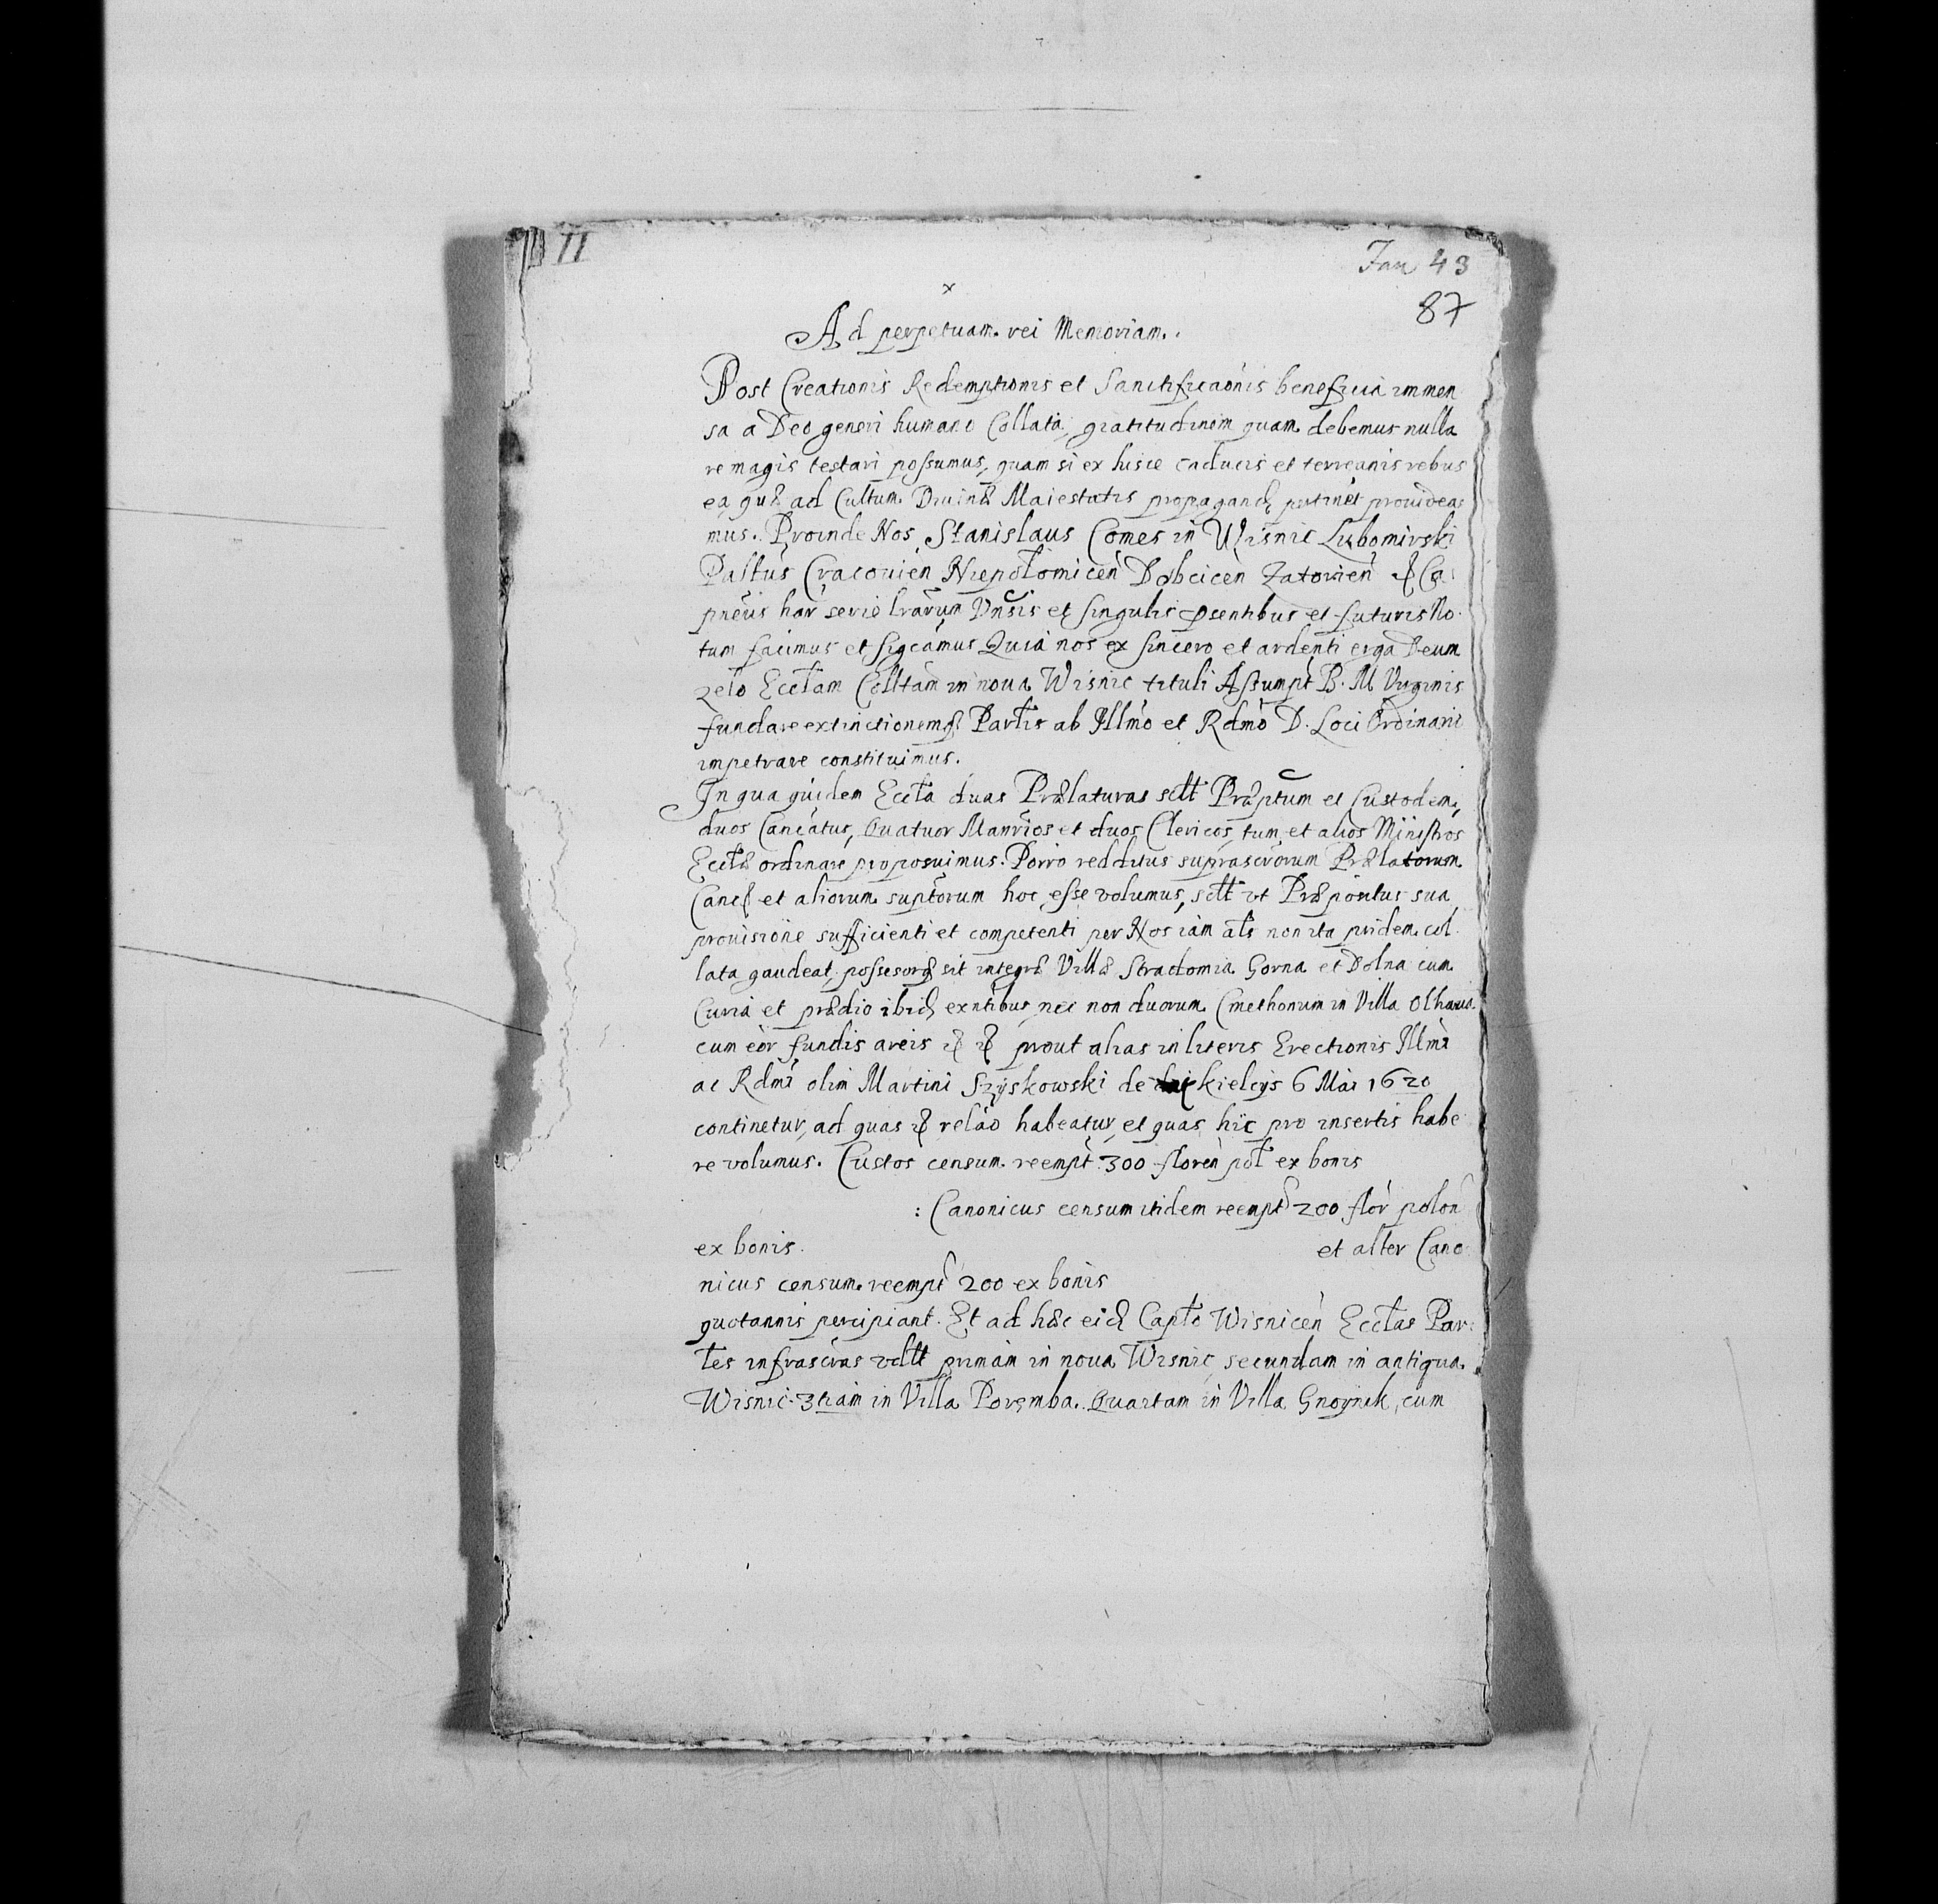 11
Jan 43
87
Ad perpetuam rei Memoriam.
Post Creationis Redemptionis et Sanctificaonis beneficia immen
sa a Deo generi humano Collata, gratitudinem quam debemus nulla
re magis testari possumus, quam si ex hisce caducis et terreanis rebus
ea quæ ad Cultum Diuinæ Maiestatis propagand pertinet prouidea
mus. Proinde Nos Stanislaus Comes in Wisnic Lubomirski
Paltus Cracouien Niepolomicen Dobcicen Zatorien & Ca
pneus har serie lrarum Vnsis et singulis psentibus et futuris No
tum facimus et sigcamus Quia nos ex sincero et ardenti erga Deum
zelo Ecclam Colltam in noua Wisnic tituli Assumpt B. M Virginis
fundare extinctionemq Parlis ab Illmo et Rdmo D. Loci Ordinario
impetrare constituimus.
In qua quidem Eccla duas Prælaturas sclt Præptum et Custodem,
duos Cancatus, Quatuor Manrios et duos Clericos, tum et alios Ministros
Ecclæ ordinare proposuimus. Porro redditus suprascrorum Prælatorum
Canc et aliorum suptorum hoc esse volumus, sclt vt Præpositus sua
prouisione sufficienti et competenti per Nos iam als non ita pridem col
lata gaudeat, possesorq sit integræ Villæ Stradomia Gorna et Dolna cum
Curia et prædio ibid exntibus, nec non duorum Cmethonum in Villa Olhaua
cum eor fundis areis & & prout alias in literis Erectionis Illmi
ac Rdmi olim Martini Szyskowski de kielcys 6 Mai 1620
continetur, ad quas & relao habeatur, et quas hic pro insertis habe
re volumus. Custos censum reempt 300 floren pol ex bonis
: Canonicus censum itidem reempt 200 flor polon
ex bonis et alter Cano
nicus censum reempt 200 ex bonis
quotannis percipiant. Et ad hæc eid Caplo Wisnicen Ecclas Par
les infrascras vdlt primam in noua Wisnic, secundam in antiqua
Wisnic. 3tiam in Villa Poremba. Quartam in Villa Gnoynik, cum